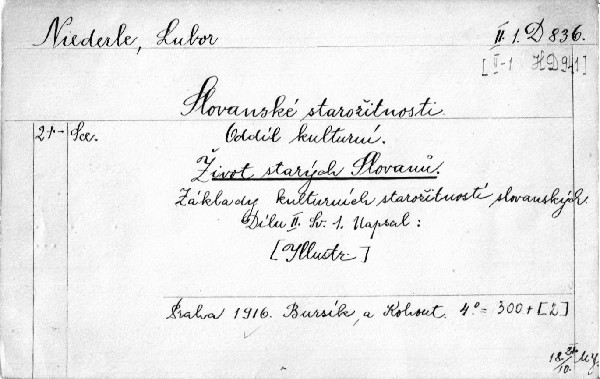 Niederle, Lubor
II. 1. D 836.
[II-1 HD941]
Slovanské starožitnosti.
21- Sce. Oddíl kulturní.
Život starých Slovanů.
Základy kulturních starožitností slovanských.
Dílu II. Sv. 1. Napsal:
[Illustr.]
Praha 1916. Bursík a Kohout. 4.° = 300 + [2]